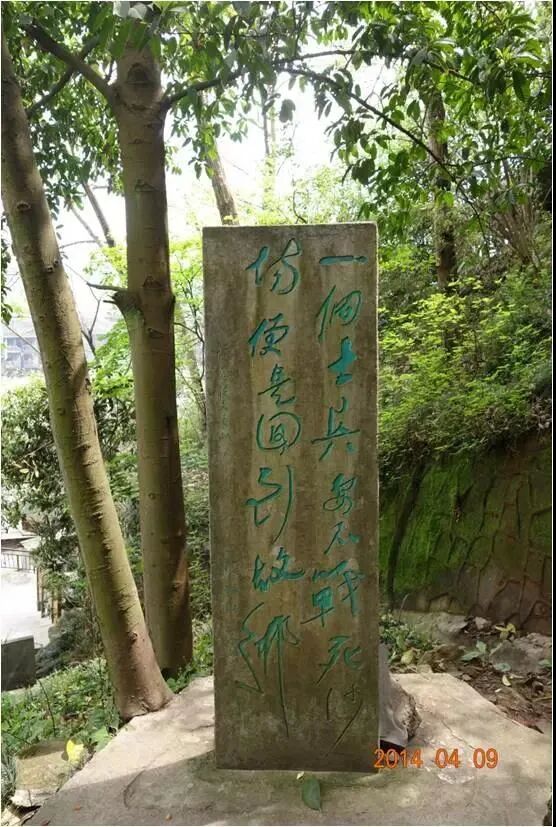 一個士兵要不戰死沙
場便是回到故鄉
2014 04 09